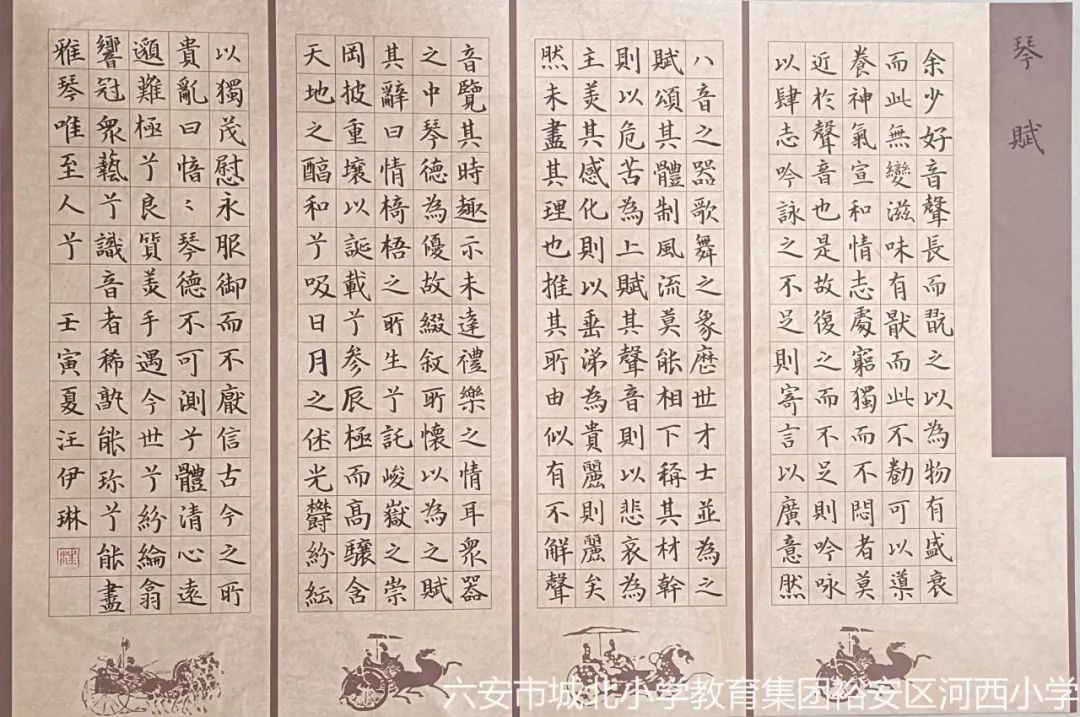 琴賦
余少好音聲長而翫之以為物有盛衰
而此無變滋味有猒而此不勌可以導
養神氣宣和情志處窮獨而不悶者莫
近於聲音也是故復之而不足則吟咏
以肆志吟詠之不足則寄言以廣意然
八音之器歌舞之象歷世才士並為之
賦頌其體制風流莫能相下稱其材幹
則以危苦為上賦其聲音則以悲哀為
主美其感化則以垂涕為貴麗則麗矣
然未盡其理也推其所由似有不解聲
音覽其時趣示未達禮樂之情耳眾器
之中琴德為優故綴叙所懷以為之賦
其辭曰情椅梧之所生兮託峻嶽之崇
岡披重壤以誕載兮參辰極而高驤含
天地之醇和兮吸日月之休光鬱紛紜
以獨茂慰永服御而不厭信古今之所
貴亂曰愔〻琴德不可測兮體清心遠
邈難極兮良質美手遇今世兮紛綸翕
響冠眾藝兮識音者稀孰能珍兮能盡
雅琴唯至人兮 壬寅夏汪伊琳
汪
六安市城北小学教育集团裕安区河西小学